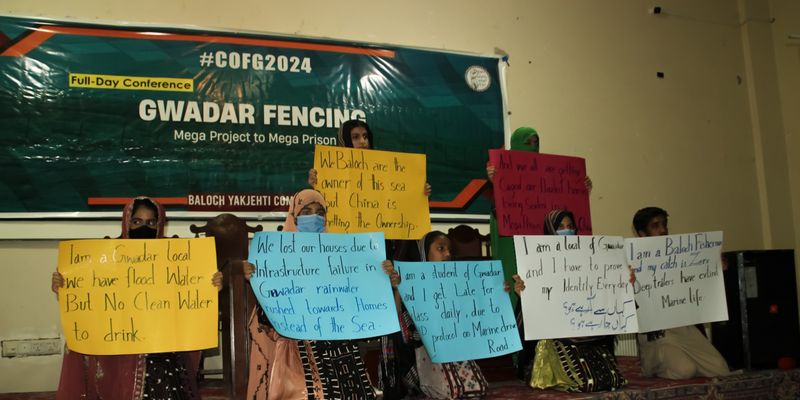 #COFG2024
Full-Day Conference
GWADAR FENCING
Mega Project to Mega Prison
BALOCH YAKJEHTI COM
We Baloch are the
owner of this sea
but China is
getting the Ownership.
And we All are getting
Caged our flooded homes
being
Mega Prison
I am a Gwadar local
we have flood Water
But No Clean Water
to drink.
We lost our houses due to
Infrastructure failure in
Gwadar rainwater
rushed towards Homes
Instead of the Sea.
I am a student of Gwadar
and I get Late for
lass daily, due to
protocol on Marine drive
Road.
I am a local of Gwadar
and I have to prove
my Identity Everyday
کہاں سے آرہے ہو؟
کہاں جارہے ہو؟
I am a Baloch Fisherman
and my catch is Zero
Deep trailers have extinct
Marine life.